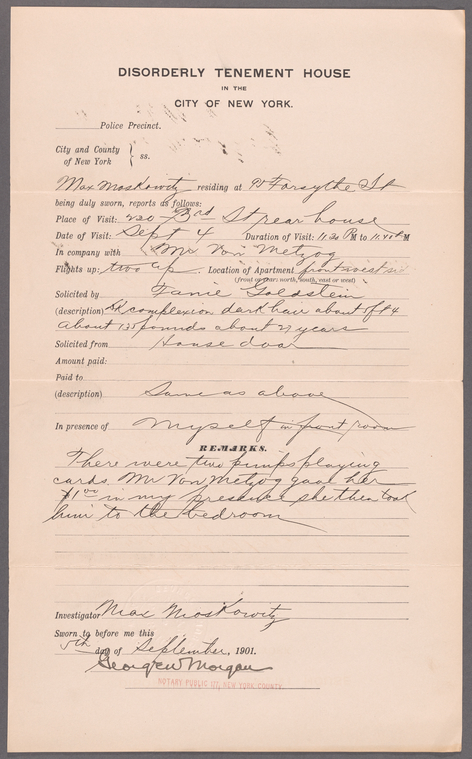 DISORDERLY TENEMENT HOUSE
IN THE
CITY OF NEW YORK.
Police Precinct.
City and County
of New York } ss.
Max Moskowitz residing at Forsythe St
being duly sworn, reports as follows:
Place of Visit: 220 - 3rd St rear house
Date of Visit: Sept 4 Duration of Visit: 11.20 P M to 11.40 P M
In company with Mr Von Metzog
Flights up: two up Location of Apartment front west
(front or rear: north, south, east or west)
Solicited by Fanie Goldstein
(description) complexion dark hair about 5 ft 4
about 135 pounds about 27 years
Solicited from House door
Amount paid:
Paid to
(description) Same as above
In presence of Myself in front room
REMARKS.
There were two pimps playing
cards. Mr Von Metzog gave her
$1 00 in my presence she then took
him to the bedroom
Investigator Max Moskowitz
Sworn to before me this
5th day of September, 1901.
George W Morgan
NOTARY PUBLIC NEW YORK COUNTY.